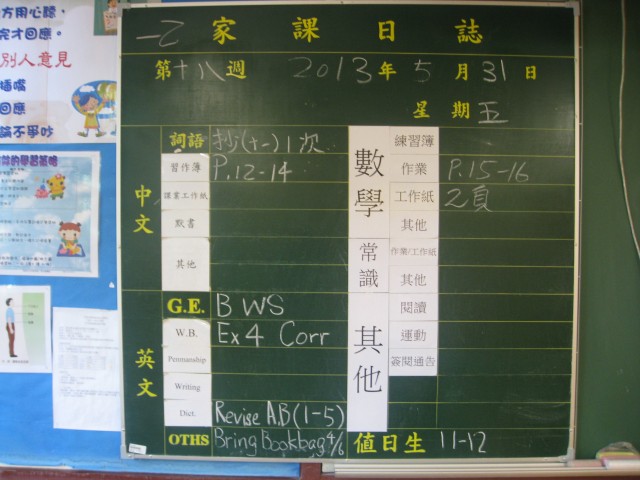 方用心聽，
完才回應。
別人意見
插嘴
回應
論不爭吵
的學習策略
一乙 家課日誌
第十八週 2013年5月31日
星期五
中文
詞語 抄(十一)1次
習作簿 P.12-14
默書
其他
英文
G.E. B WS
W.B. Ex 4 Corr
Penmanship
Writing
Dict. Revise A.B(1-5)
OTHS Bring Bookbag 4/6
數學
練習簿
作業 P.15-16
工作紙 2頁
其他
常識
作業/工作紙
其他
其他
閱讀
運動
簽閱通告
值日生 11-12